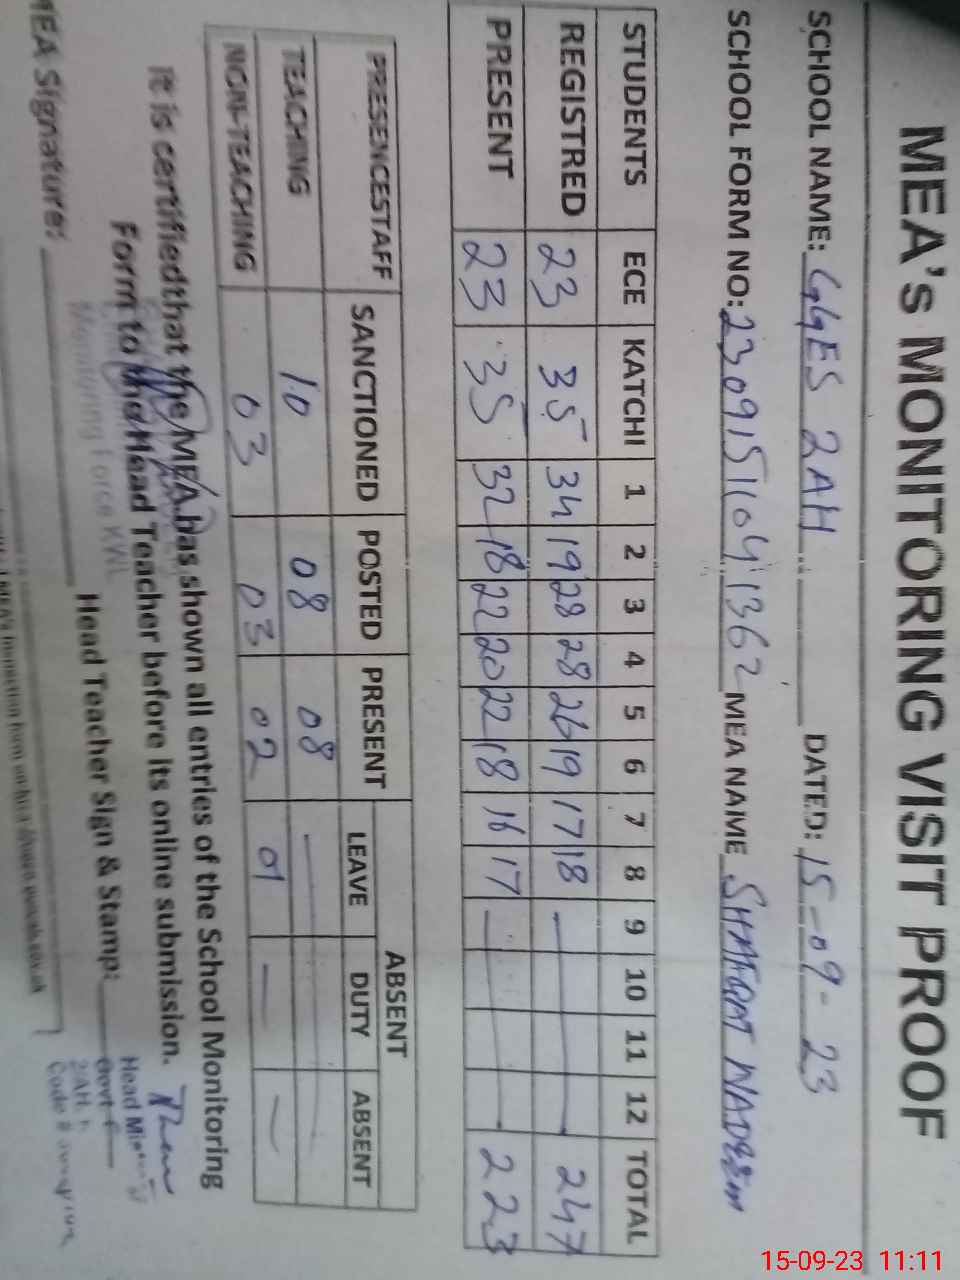 MEA's MONITORING VISIT PROOF
SCHOOL NAME: GGES 2AH DATED: 15-09-23
SCHOOL FORM NO: 23091511041362 MEA NAME SHAFQAT NADEEM
STUDENTS ECE KATCHI 1 2 3 4 5 6 7 8 9 10 11 12 TOTAL
REGISTRED 23 35 34 19 28 28 26 19 17 18 — 247
PRESENT 23 35 32 18 22 20 22 18 16 17 — 223
PRESENCESTAFF SANCTIONED POSTED PRESENT ABSENT
LEAVE DUTY ABSENT
TEACHING 10 08 08 —
NON-TEACHING 03 03 02 01 — —
It is certifiedthat the MEA has shown all entries of the School Monitoring
Form to the Head Teacher before its online submission.
Monitoring Force KWL
MEA Signature: Head Teacher Sign & Stamp:
Head
Govt
2AH
Code #
15-09-23 11:11